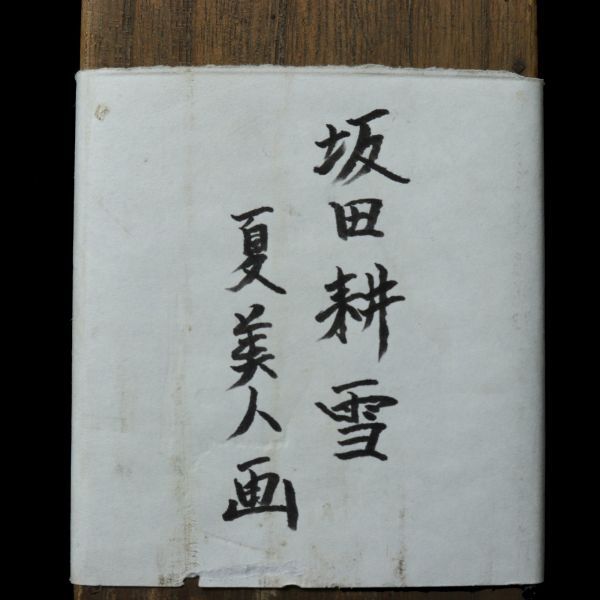 坂田耕雪
夏美人画